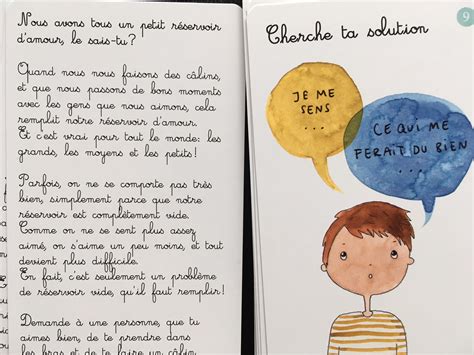 Nous avons tous un petit réservoir
d'amour, le sais-tu?
Quand nous nous faisons des câlins,
et que nous passons de bons moments
avec les gens que nous aimons, cela
remplit notre réservoir d'amour.
Et c'est vrai pour tout le monde: les
grands, les moyens et les petits!
Parfois, on ne se comporte pas très
bien, simplement parce que notre
réservoir est complètement vide.
Comme on ne se sent plus assez
aimé, on s'aime un peu moins, et tout
devient plus difficile.
En fait, c'est seulement un problème
de réservoir vide, qu'il faut remplir!
Demande à une personne, que tu
aimes bien, de te prendre dans
les bras et de te faire un câlin
9
Cherche ta solution
JE ME
SENS
...
CE QUI ME
FERAIT DU BIEN
...